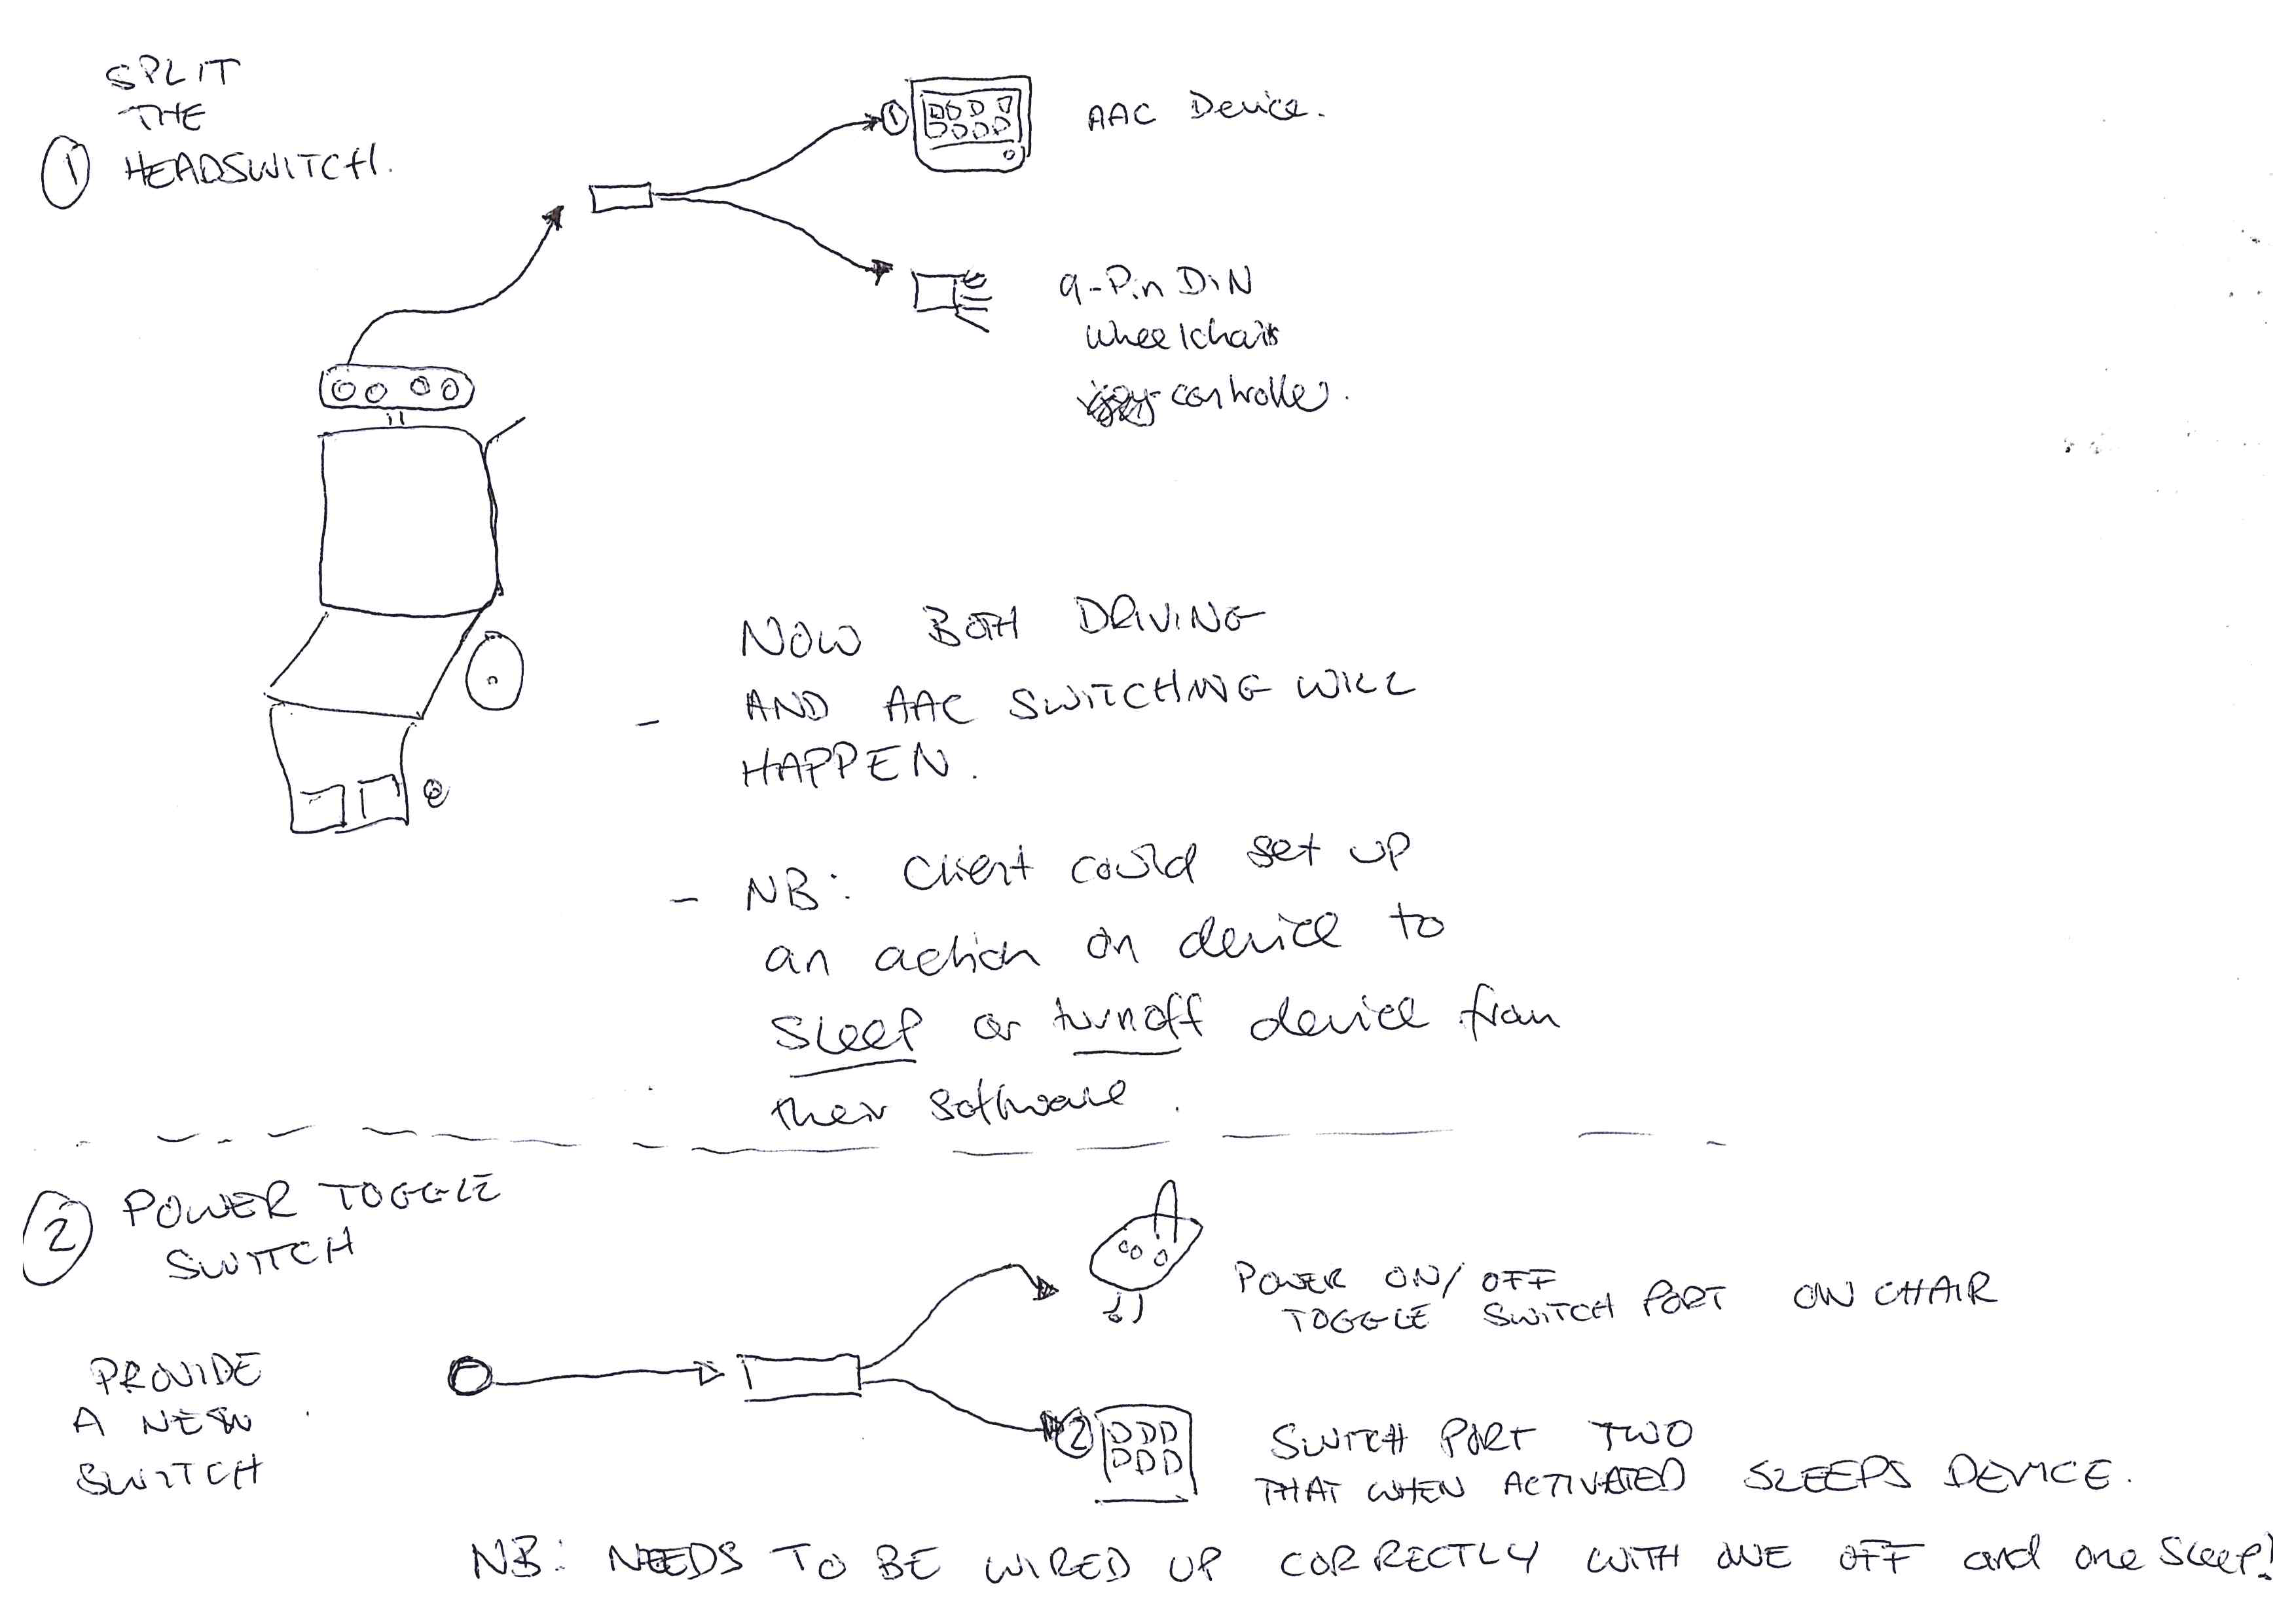 SPLIT
THE
① HEADSWITCH.
① AAC Device.
9-Pin DIN
Wheelchair
controller.
NOW BOTH DRIVING
- AND AAC SWITCHING WILL
HAPPEN.
- NB: Client could set up
an action on device to
sleep or turnoff device from
their software.
② POWER TOGGLE
SWITCH
POWER ON/OFF
TOGGLE SWITCH PORT ON CHAIR
PROVIDE
A NEW
SWITCH
②
SWITCH PORT TWO
THAT WHEN ACTIVATED SLEEPS DEVICE.
NB: NEEDS TO BE WIRED UP CORRECTLY WITH ONE OFF and one Sleep!